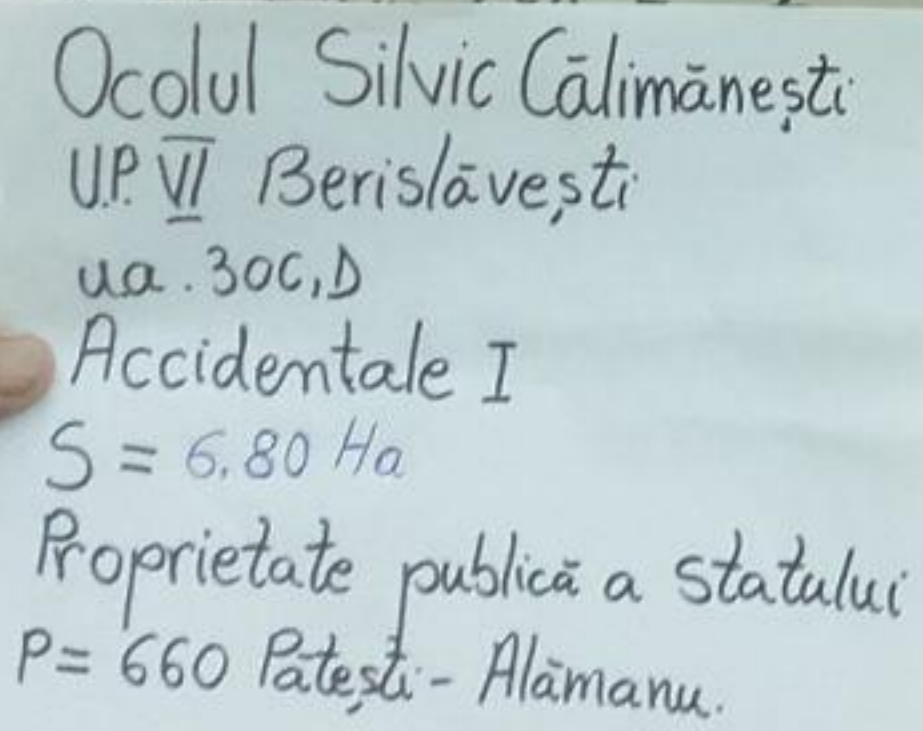 Ocolul Silvic Călimănești
U.P. VI Berislăvești
ua. 30C,D
Accidentale I
S = 6.80 Ha
Proprietate publică a statului
P= 660 Pătești - Alămanu.